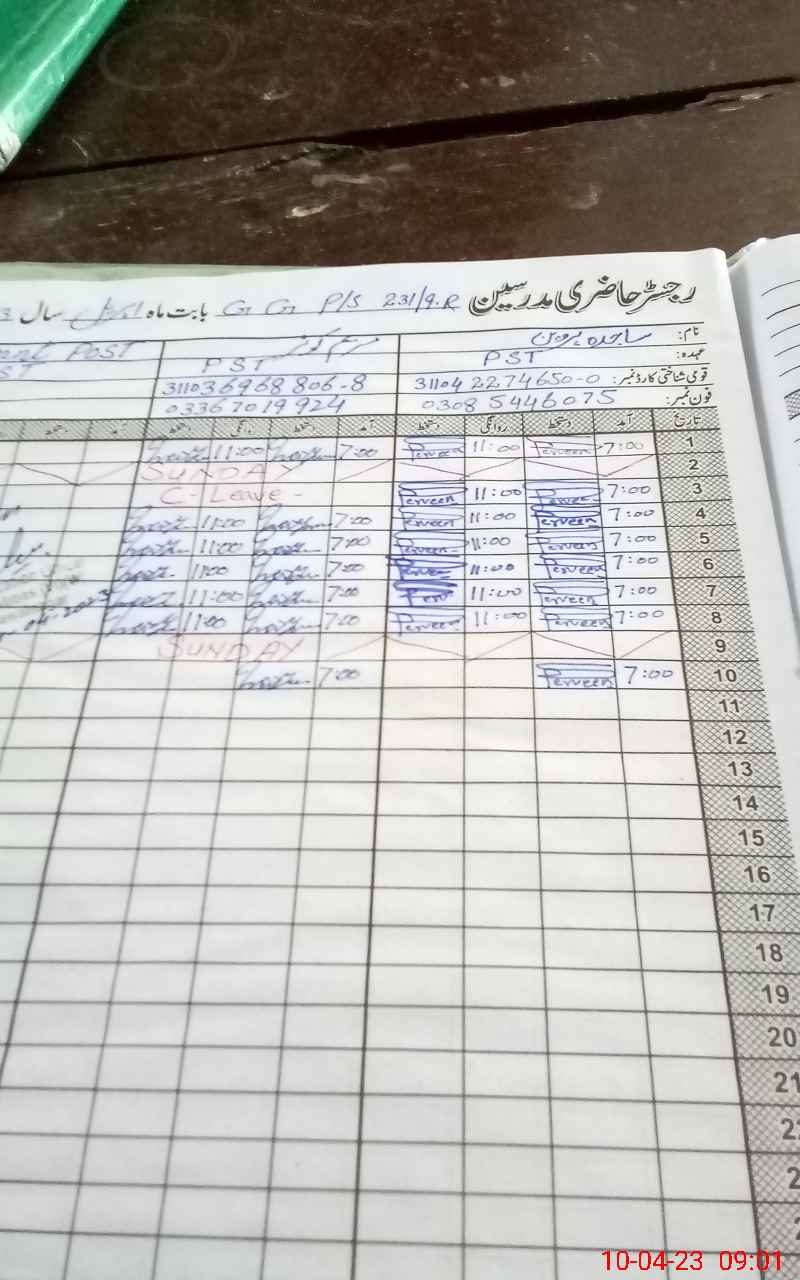 رجسٹر حاضری مدرسین G G P/S 231/9.R بابت ماہ اپریل سال 3
نام: ساجدہ پروین مریم کوثر
عہدہ: PST PST POST ST
قومی شناختی کارڈ نمبر: 31104 2274650-0 311036968806-8
فون نمبر: 0308 5446075 03367019924
تاریخ آمد دستخط روانگی دستخط آمد دستخط روانگی دستخط آمد دستخط
1 7:00 Perveen 11:00 Perveen 7:00 11:00
2 SUNDAY
3 7:00 Perveen 11:00 Perveen C-Leave-
4 7:00 Perveen 11:00 Perveen 7:00 11:00
5 7:00 Perveen 11:00 Perveen 7:00 11:00
6 7:00 Perveen 11:00 Perveen 7:00 11:00
7 7:00 Perveen 11:00 7:00 11:00
8 7:00 Perveen 11:00 Perveen 7:00 11:00
9 SUNDAY
10 7:00 Perveen 7:00
11
12
13
14
15
16
17
18
19
20
21
10-04-23 09:01